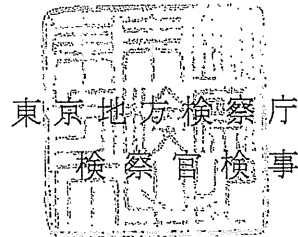 東京地方検察庁
検察官検事